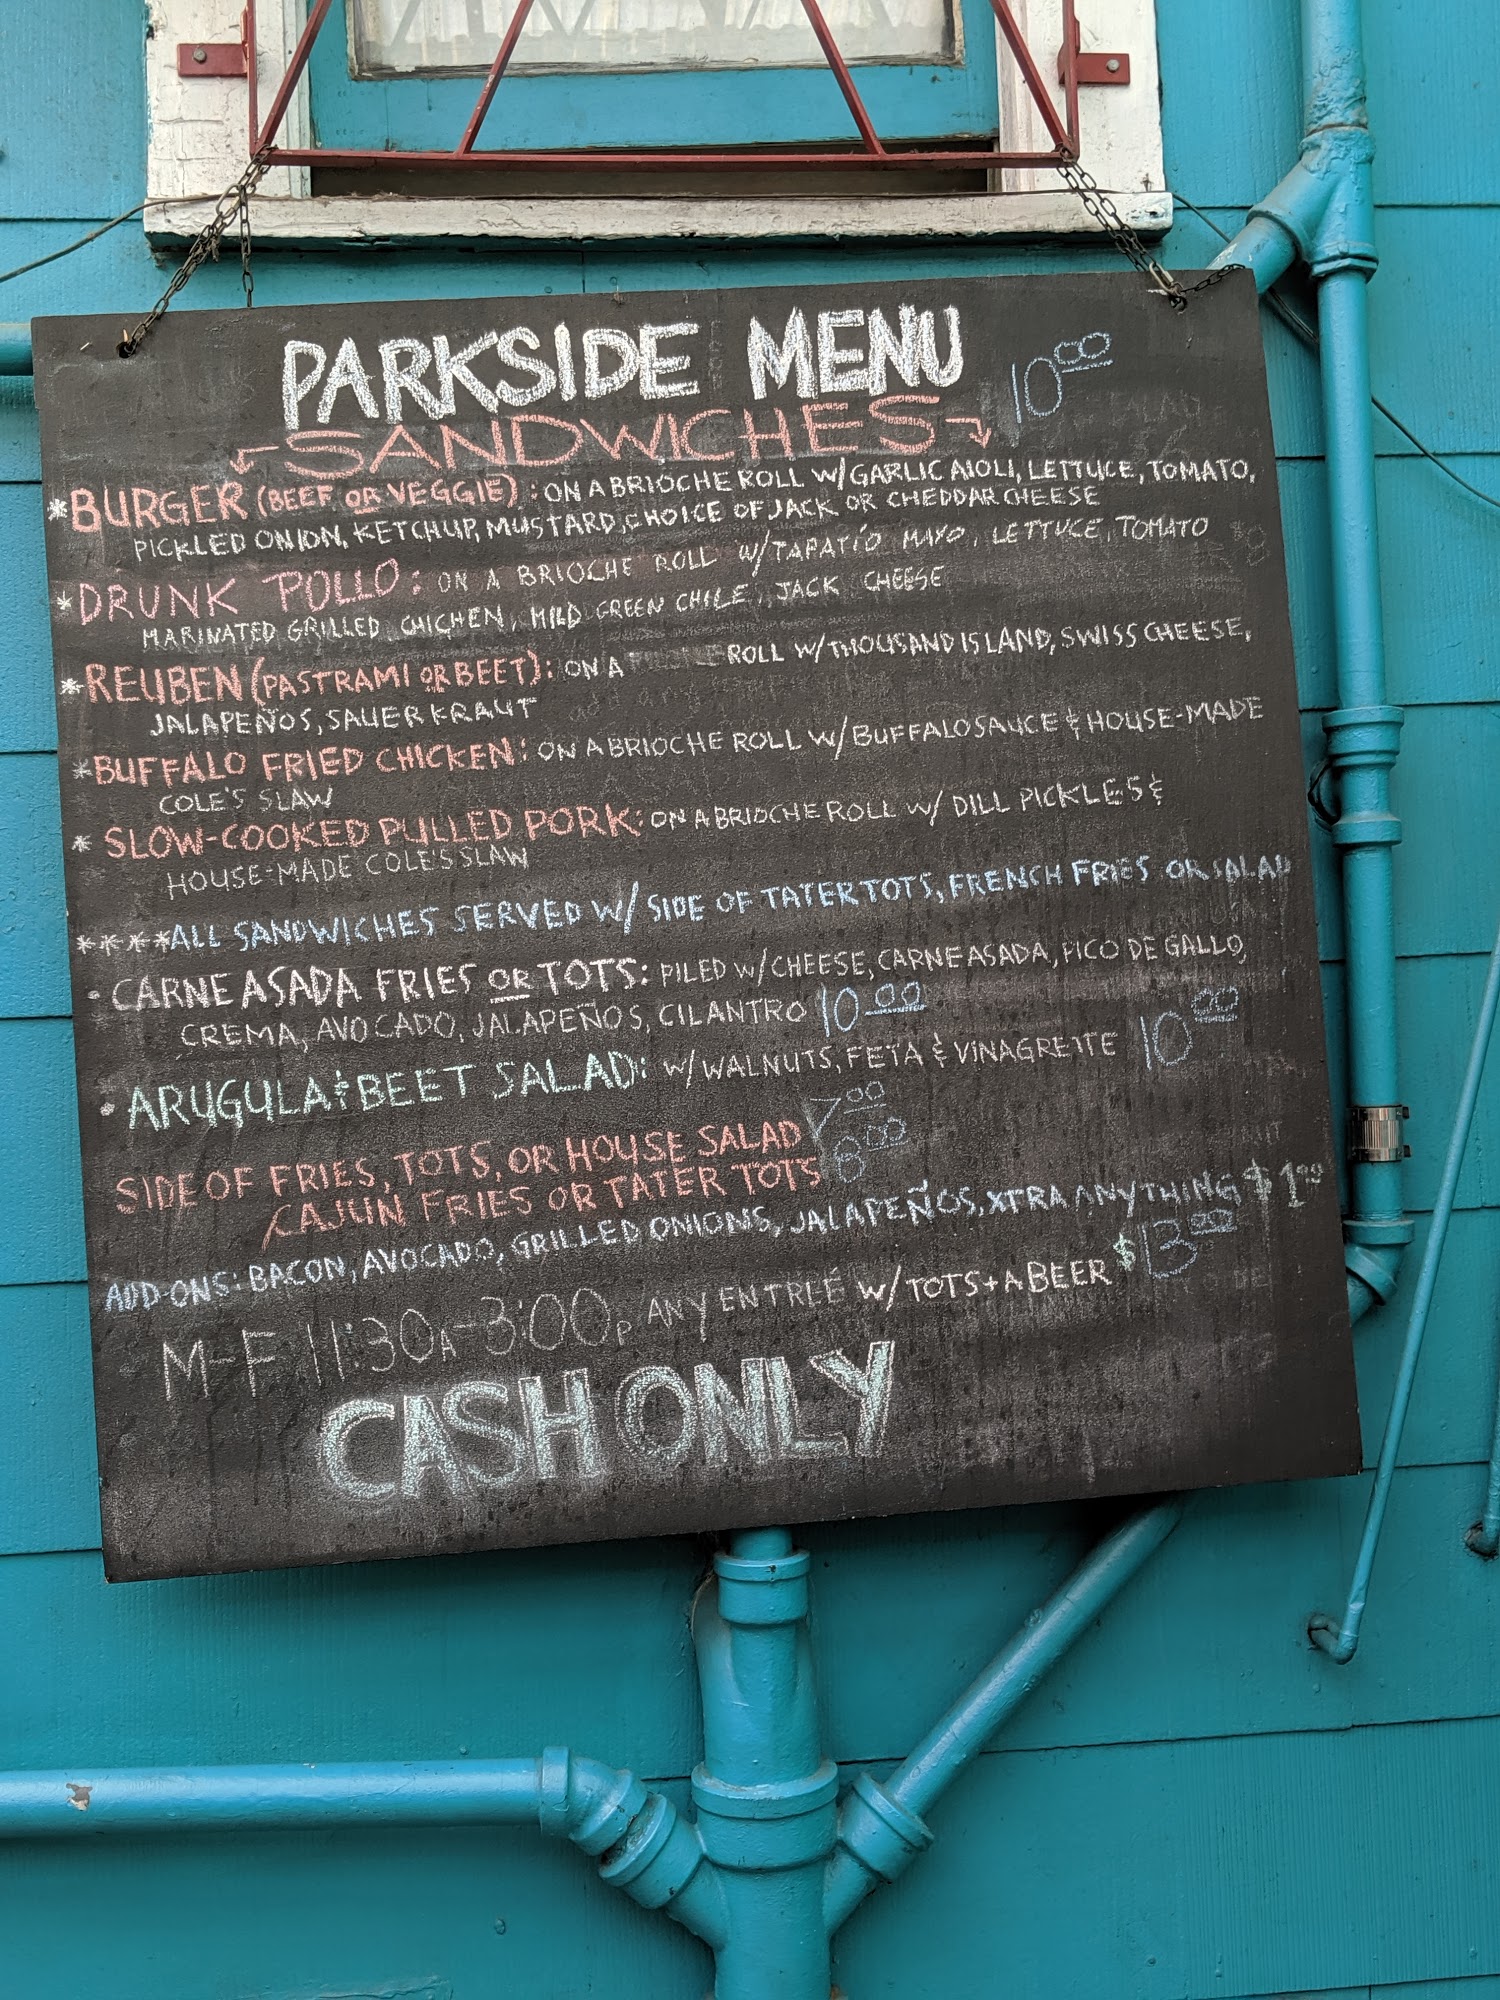 PARKSIDE MENU
SANDWICHES 10.00
*BURGER (BEEF OR VEGGIE): ON A BRIOCHE ROLL W/ GARLIC AIOLI, LETTUCE, TOMATO,
PICKLED ONION, KETCHUP, MUSTARD, CHOICE OF JACK OR CHEDDAR CHEESE
*DRUNK POLLO: ON A BRIOCHE ROLL W/ TAPATÍO MAYO, LETTUCE, TOMATO
MARINATED GRILLED CHICHEN, MILD GREEN CHILE, JACK CHEESE
*REUBEN (PASTRAMI OR BEET): ON A ROLL W/ THOUSAND ISLAND, SWISS CHEESE,
JALAPEÑOS, SAUERKRAUT
*BUFFALO FRIED CHICKEN: ON A BRIOCHE ROLL W/ BUFFALO SAUCE & HOUSE-MADE
COLE'S SLAW
* SLOW-COOKED PULLED PORK: ON A BRIOCHE ROLL W/ DILL PICKLES &
HOUSE-MADE COLE'S SLAW
****ALL SANDWICHES SERVED W/ SIDE OF TATER TOTS, FRENCH FRIES OR SALAD
· CARNE ASADA FRIES OR TOTS: PILED W/ CHEESE, CARNE ASADA, PICO DE GALLO,
CREMA, AVOCADO, JALAPEÑOS, CILANTRO 10.00
· ARUGULA & BEET SALAD: W/ WALNUTS, FETA & VINAGRETTE 10.00
SIDE OF FRIES, TOTS, OR HOUSE SALAD 7.00
CAJUN FRIES OR TATER TOTS 8.00
ADD-ONS: BACON, AVOCADO, GRILLED ONIONS, JALAPEÑOS, XTRA ANYTHING $1.00
M-F 11:30A-3:00P ANY ENTRLÉ W/ TOTS + A BEER $13.00
CASH ONLY